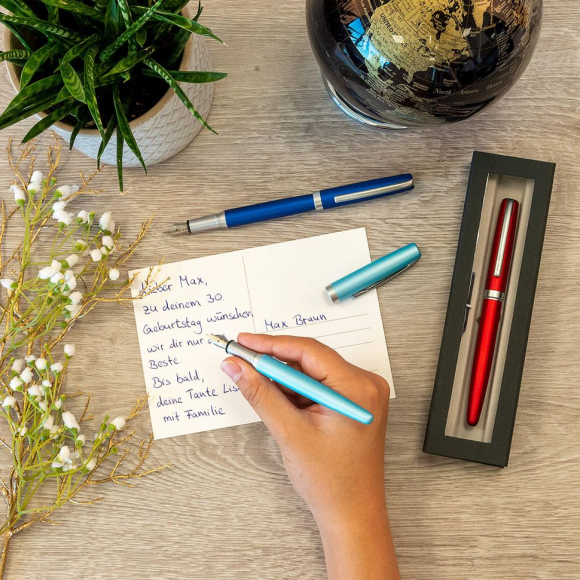 Lieber Max,
zu deinem 30.
Geburtstag wünschen
wir dir nur
Beste.
Bis bald,
deine Tante
mit Familie
Max Braun
North